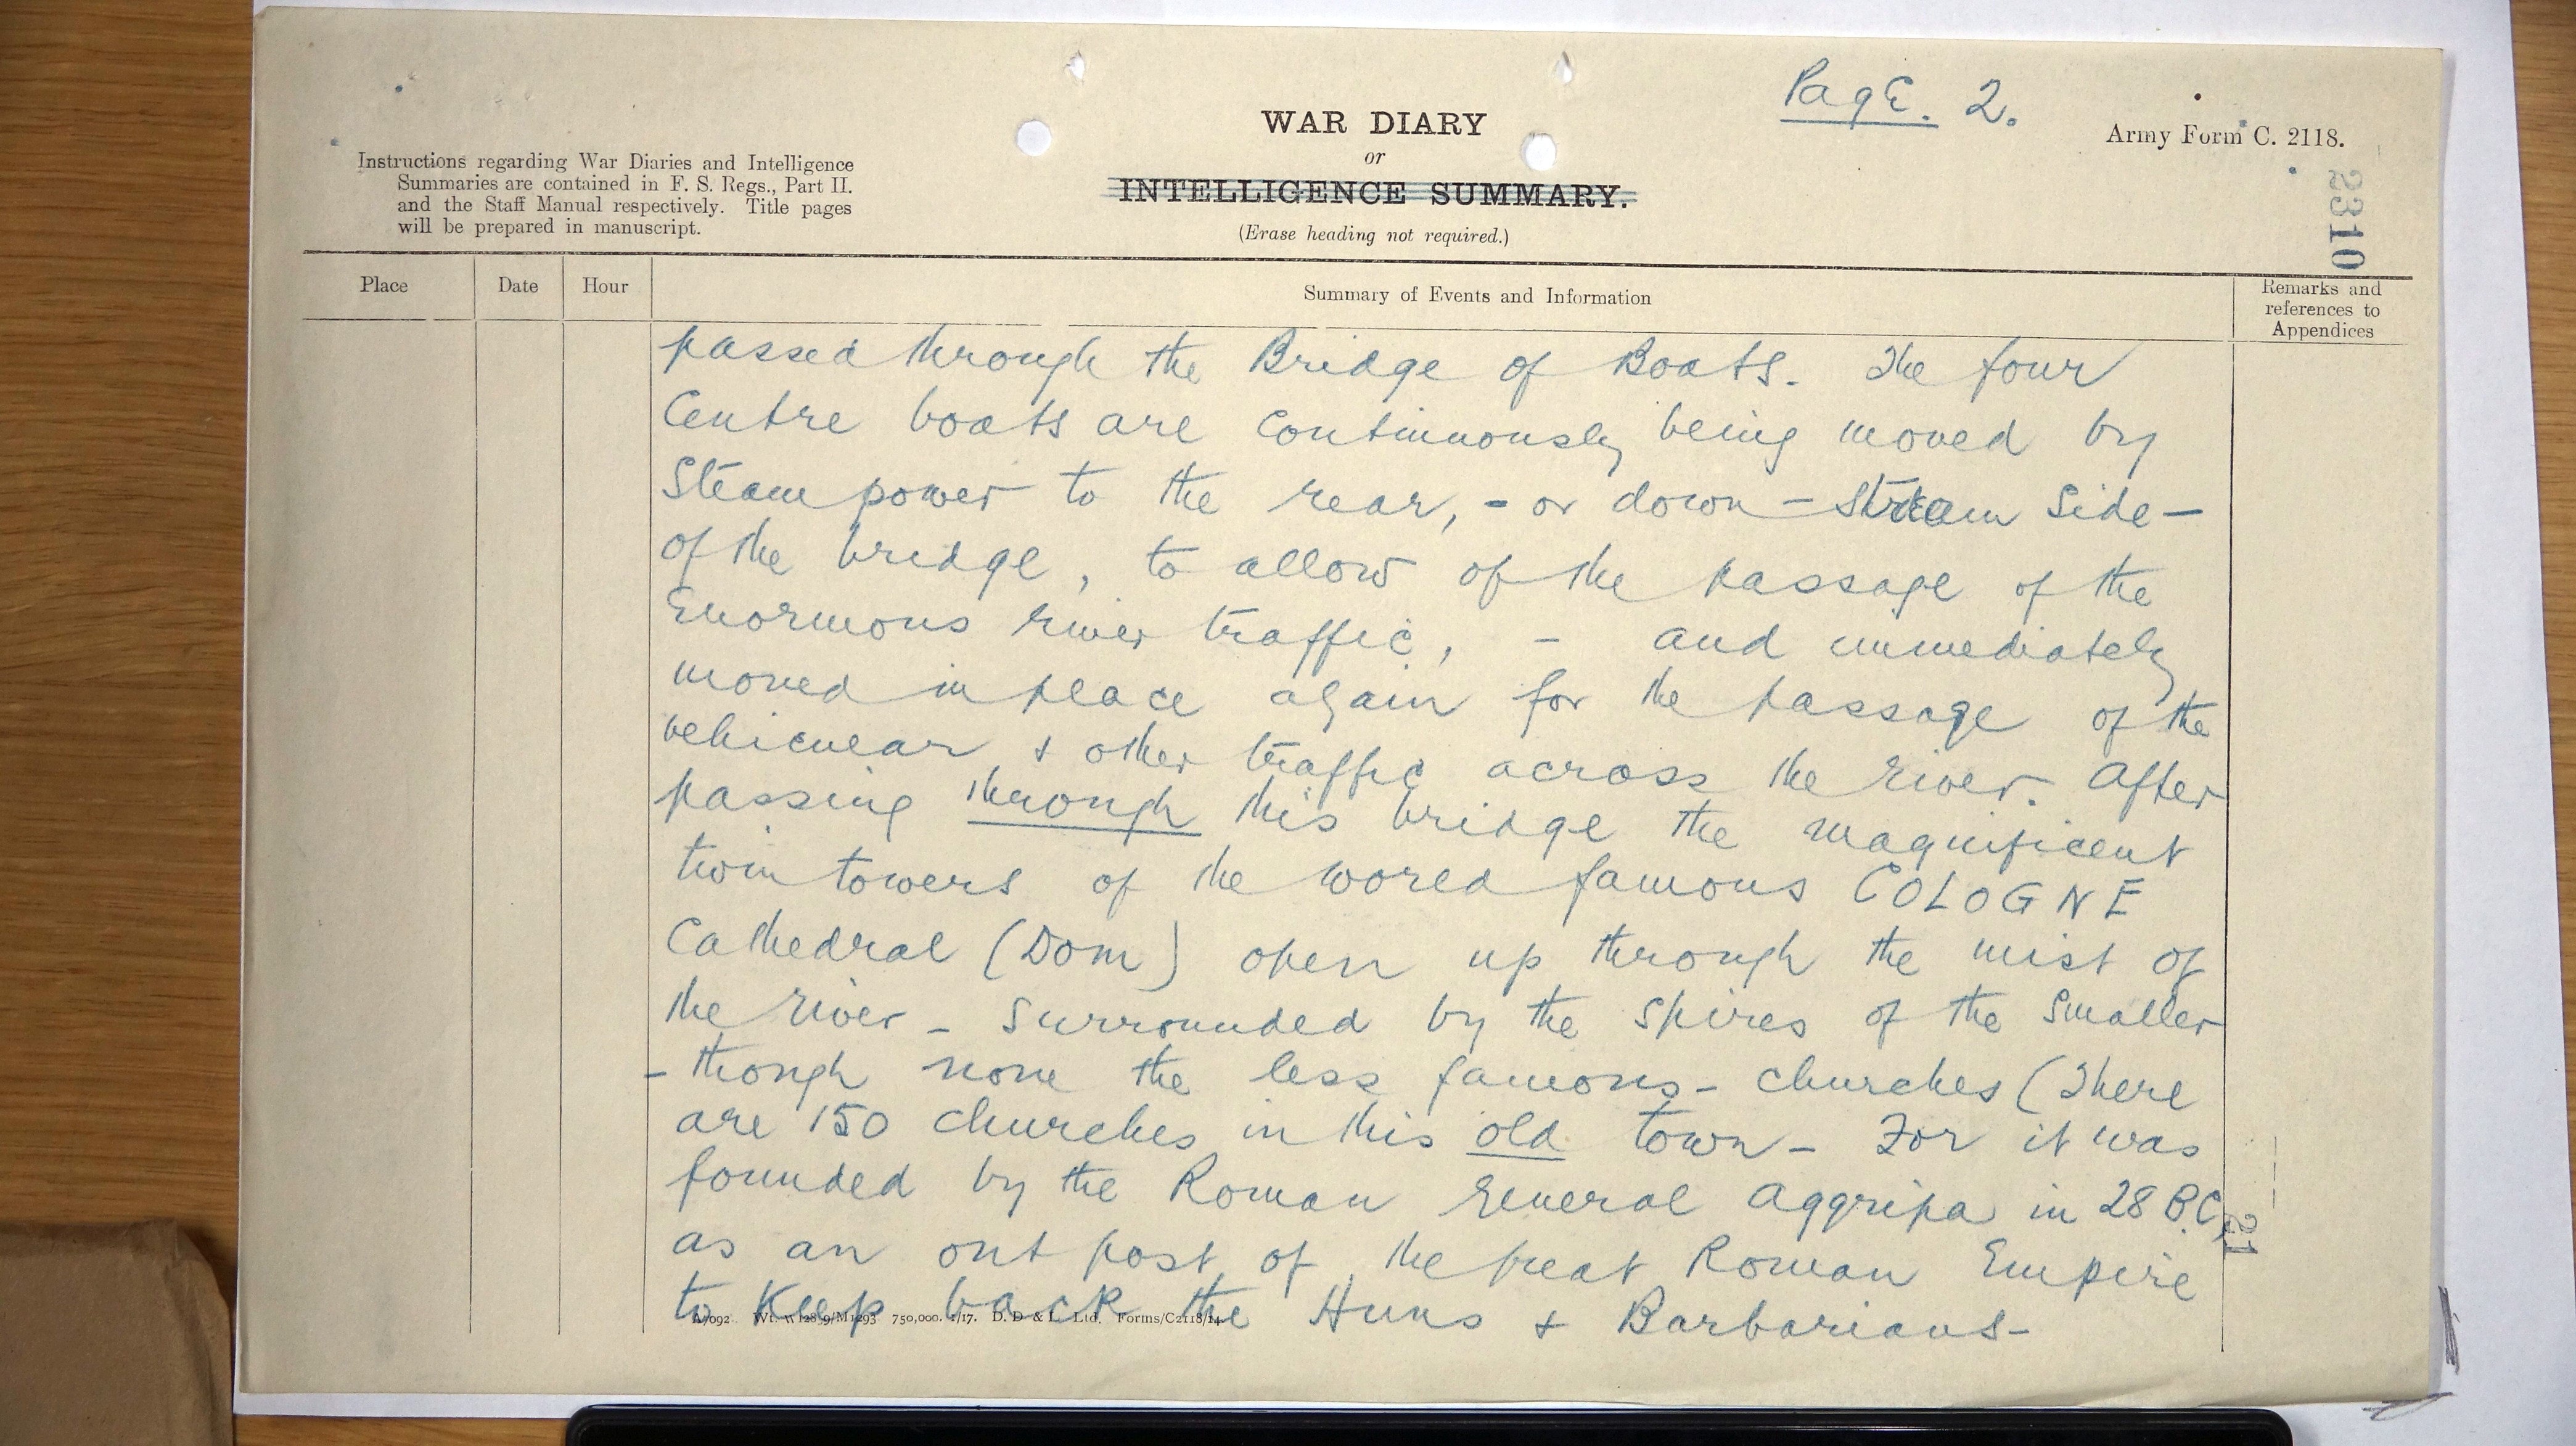 Page. 2.
WAR DIARY
or
INTELLIGENCE SUMMARY.
(Erase heading not required.)
Army Form C. 2118.
Instructions regarding War Diaries and Intelligence
Summaries are contained in F. S. Regs., Part II.
and the Staff Manual respectively. Title pages
will be prepared in manuscript.
2310
Place
Date
Hour
Summary of Events and Information
Remarks and
references to
Appendices
passed through the Bridge of Boats. The four
Centre boats are continuously being moved by
Steam power to the rear, - or down - stream side -
of the bridge, to allow of the passage of the
Enormous river traffic, - and immediately
moved in place again for the passage of the
vehicular & other traffic across the river. After
passing through this bridge the magnificent
twin towers of the world famous COLOGNE
Cathedral (Dom) open up through the mist of
the river - surrounded by the spires of the smaller
- though none the less famous - churches (There
are 150 churches in this old town - For it was
founded by the Roman General Aggripa in 28 B.C,
as an out post of the great Roman Empire
to keep back the Huns & Barbarians -
21
750,000. 1/17. D. D & L. Ltd. Forms/C2118/14.